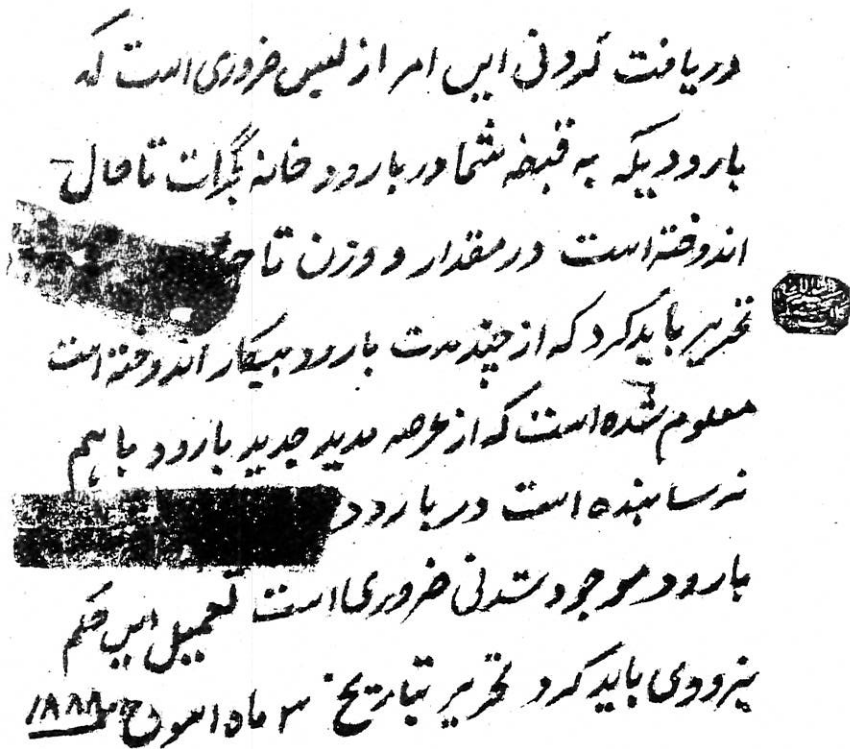 دریافت کردنی این امر از بس ضروری است که
بارودیکه به قبضه شما در بارود خانه گجرات تا حال
اندوخته است در مقدار و وزن تا
تحریر باید کرد که از چند مدت بارود بیکار اندوخته است
معلوم شده است که از عرصه مدید جدید بارود باهم
نه رسانیده است در بارود
بارود موجود شدنی ضروری است تعمیل این حکم
بزودی باید کرد تحریر بتاریخ ۳ ماه اسوج ۱۸۸۸